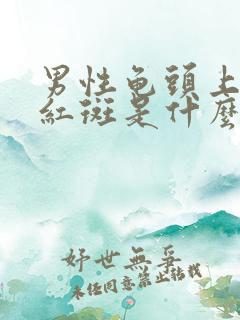 男性龟頭上
紅斑是什麼
妤世無妄
未经同意禁止转载